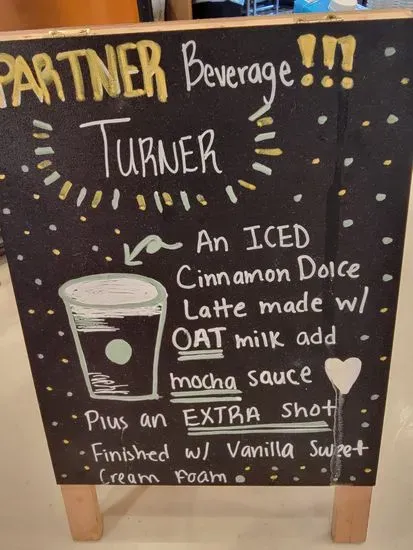 PARTNER Beverage!!!
TURNER
An ICED
Cinnamon Dolce
Latte made w/
OAT milk add
mocha sauce
Plus an EXTRA shot
Finished w/ Vanilla Sweet
Cream Foam